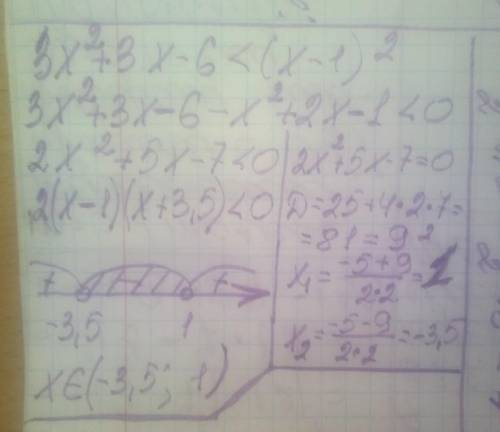 3x²+3x-6<(x-1)²
3x²+3x-6-x²+2x-1<0
2x²+5x-7<0
2(x-1)(x+3,5)<0
+ - +
-3,5 1
x∈(-3,5; 1)
2x²+5x-7=0
D=25+4·2·7=
=81=9²
x₁=(-5+9)/(2·2)=1
x₂=(-5-9)/(2·2)=-3,5